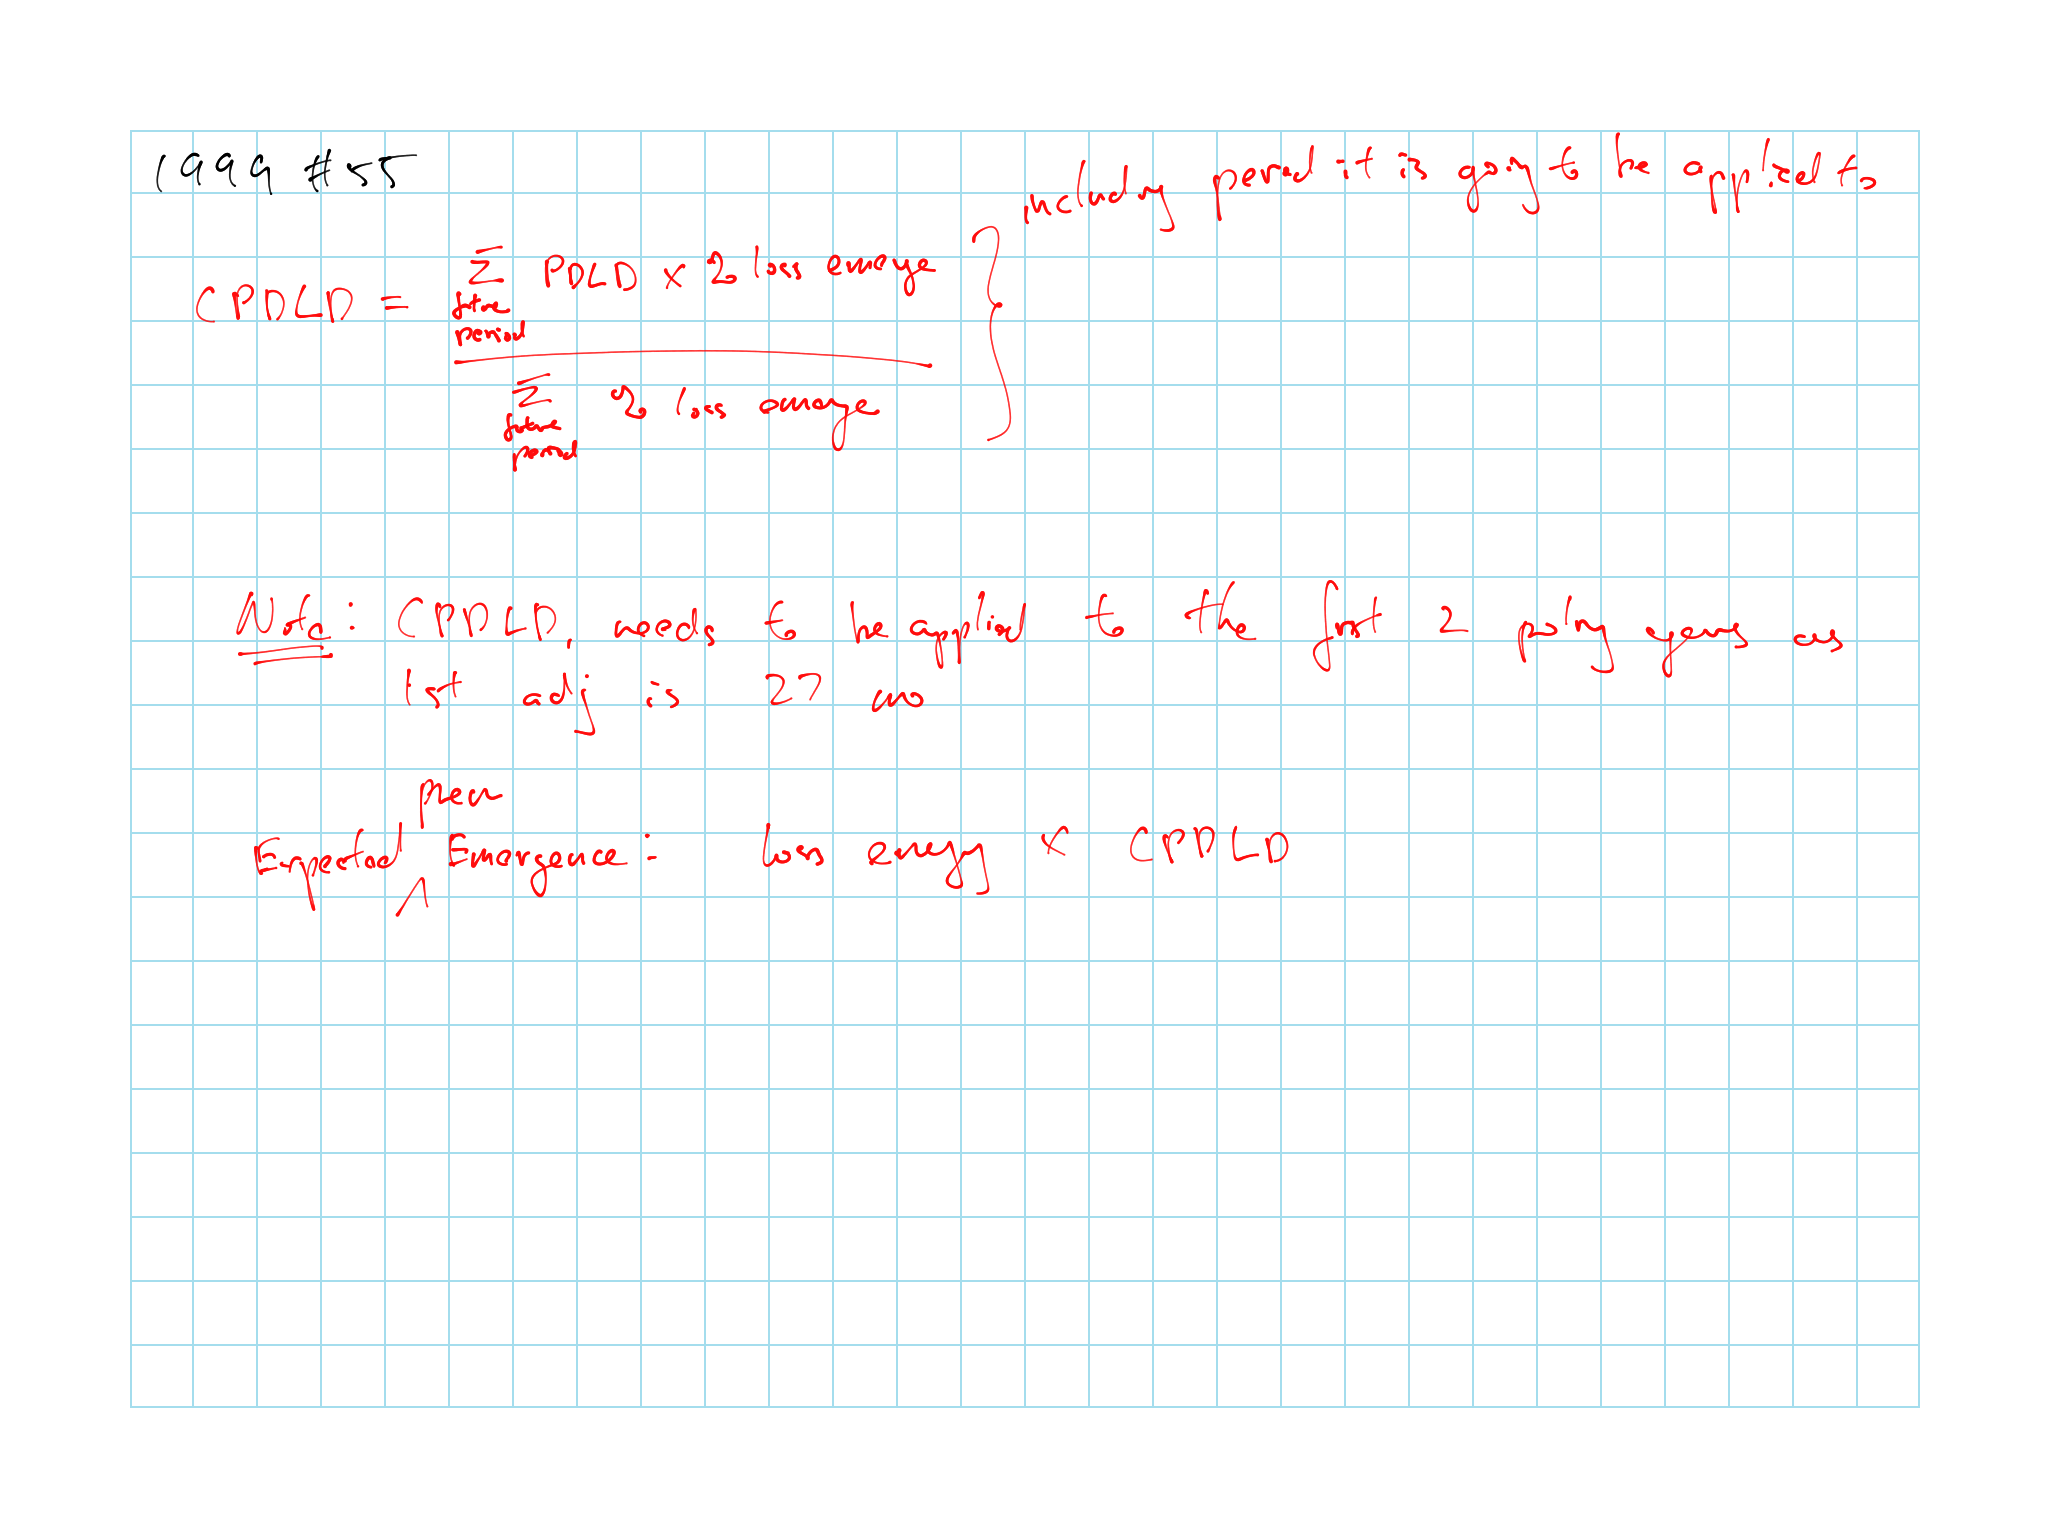 1999 #55
including period it is going to be applied to
CPDLD = Σ PDLD × % loss emerge
future
period
Σ % loss emerge
future
period
Note: CPDLD, needs to be applied to the first 2 policy years as
1st adj is 27 mo
prem
Expected Emergence: loss emerg × CPDLD